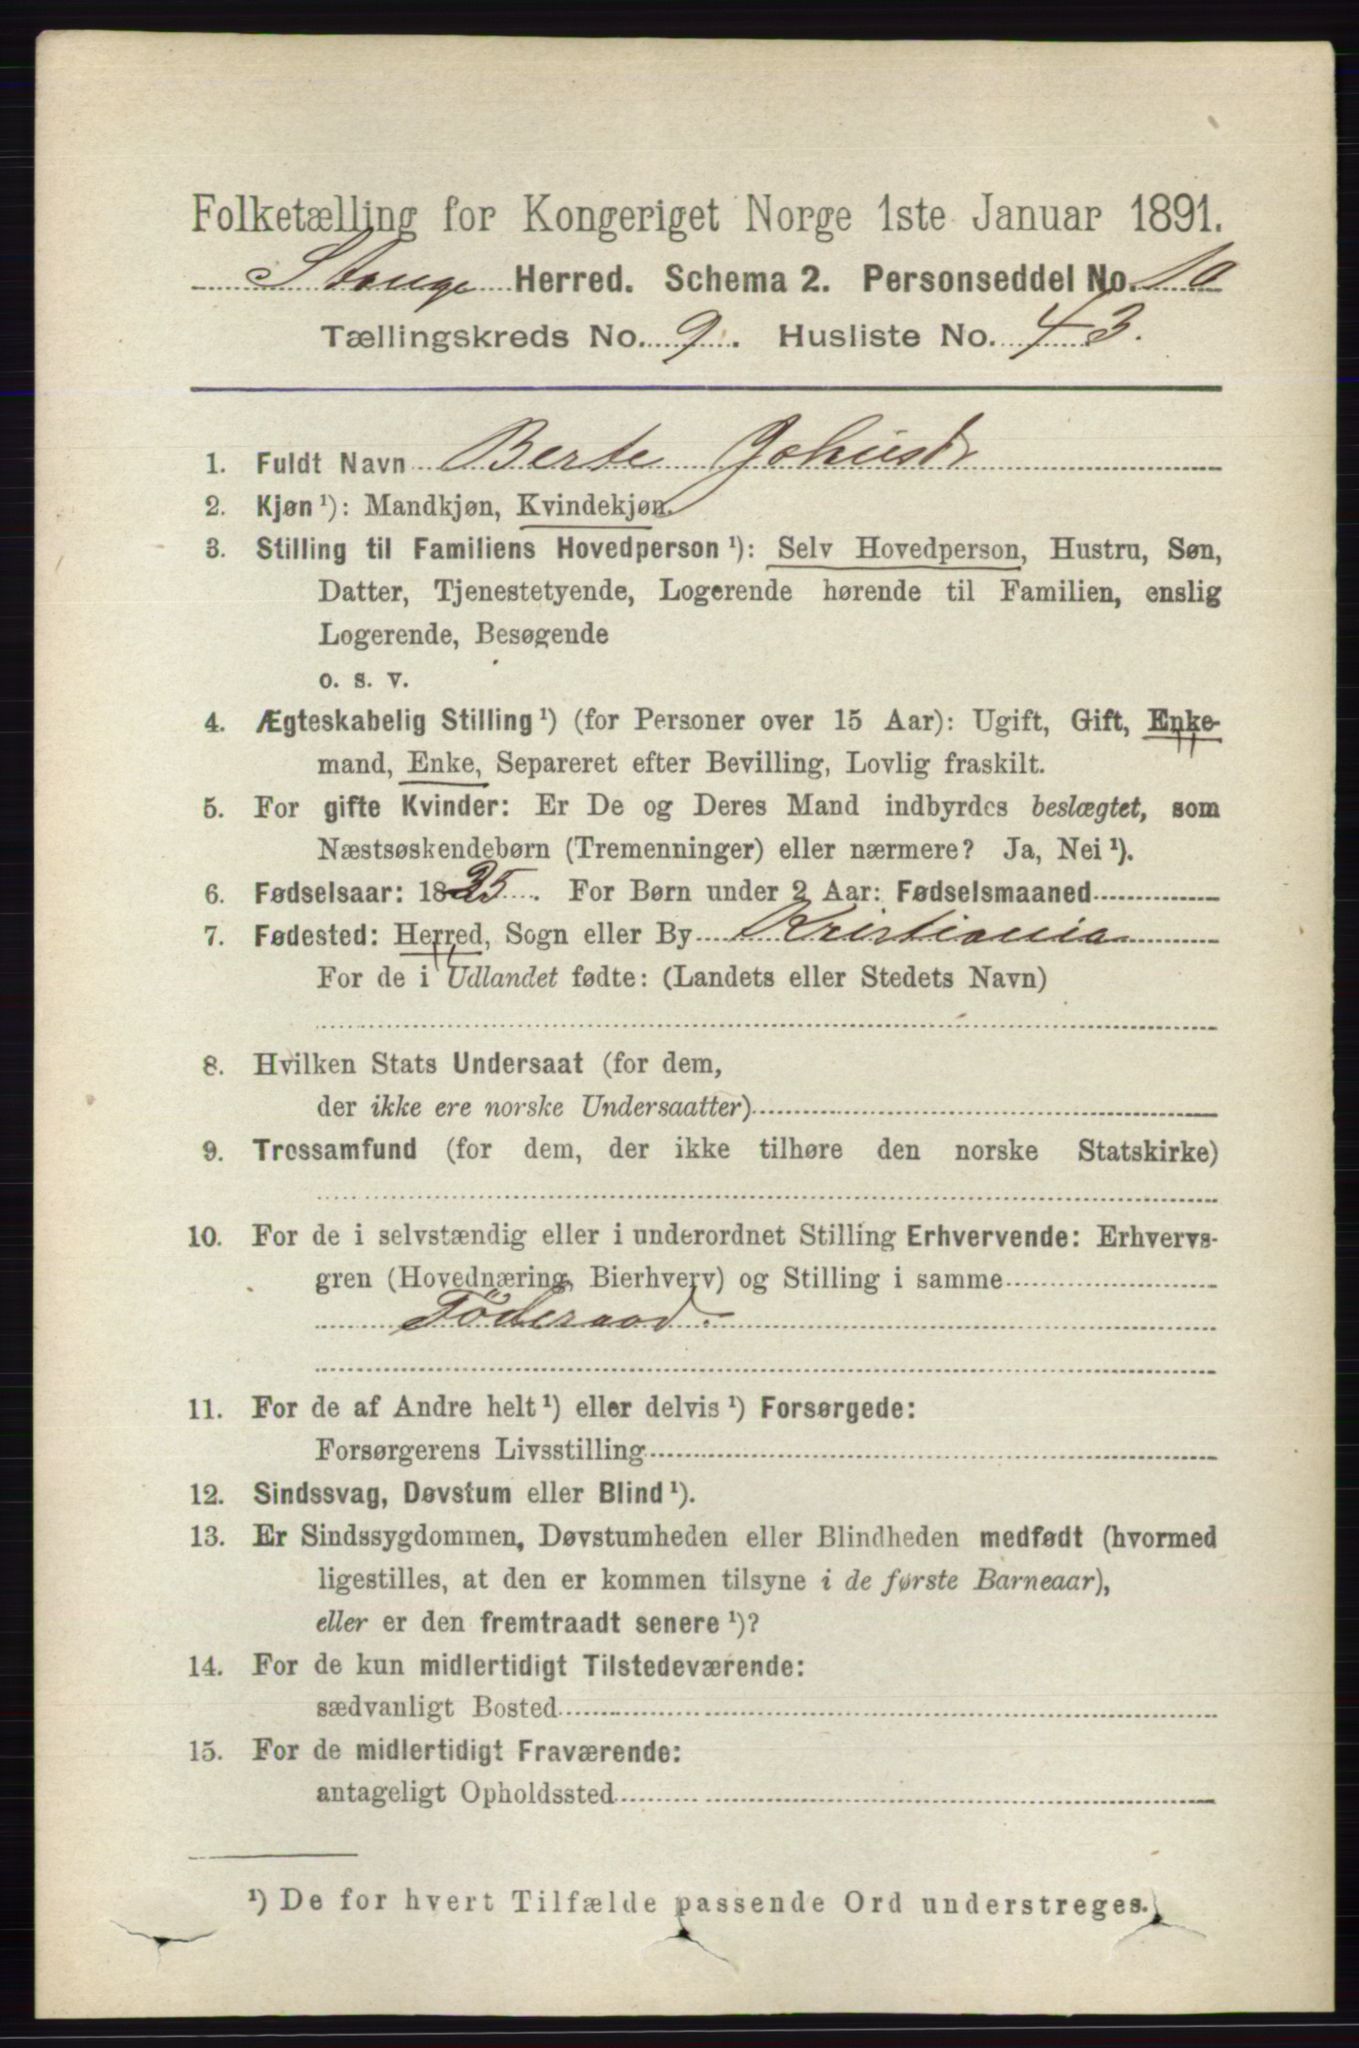 Folketælling for Kongeriget Norge 1ste Januar 1891.
Stange Herred. Schema 2. Personseddel No. 10
Tællingskreds No. 9. Husliste No. 43.
1. Fuldt Navn Berte Johnsdr
2. Kjøn ¹): Mandkjøn, Kvindekjøn.
3. Stilling til Familiens Hovedperson ¹): Selv Hovedperson, Hustru, Søn,
Datter, Tjenestetyende, Logerende hørende til Familien, enslig
Logerende, Besøgende
o. s. v.
4. Ægteskabelig Stilling ¹) (for Personer over 15 Aar): Ugift, Gift, Enke-
mand, Enke, Separeret efter Bevilling, Lovlig fraskilt.
5. For gifte Kvinder: Er De og Deres Mand indbyrdes beslægtet, som
Næstsøskendebørn (Tremenninger) eller nærmere? Ja, Nei ¹).
6. Fødselsaar: 1835. For Børn under 2 Aar: Fødselsmaaned
7. Fødested: Herred, Sogn eller By Kristiania
For de i Udlandet fødte: (Landets eller Stedets Navn)
8. Hvilken Stats Undersaat (for dem,
der ikke ere norske Undersaatter)
9. Trossamfund (for dem, der ikke tilhøre den norske Statskirke)
10. For de i selvstændig eller i underordnet Stilling Erhvervende: Erhvervs-
gren (Hovednæring, Bierhverv) og Stilling i samme
Föderaad.
11. For de af Andre helt ¹) eller delvis ¹) Forsørgede:
Forsørgerens Livsstilling
12. Sindssvag, Døvstum eller Blind ¹).
13. Er Sindssygdommen, Døvstumheden eller Blindheden medfødt (hvormed
ligestilles, at den er kommen tilsyne i de første Barneaar),
eller er den fremtraadt senere ¹)?
14. For de kun midlertidigt Tilstedeværende:
sædvanligt Bosted
15. For de midlertidigt Fraværende:
antageligt Opholdssted
¹) De for hvert Tilfælde passende Ord understreges.